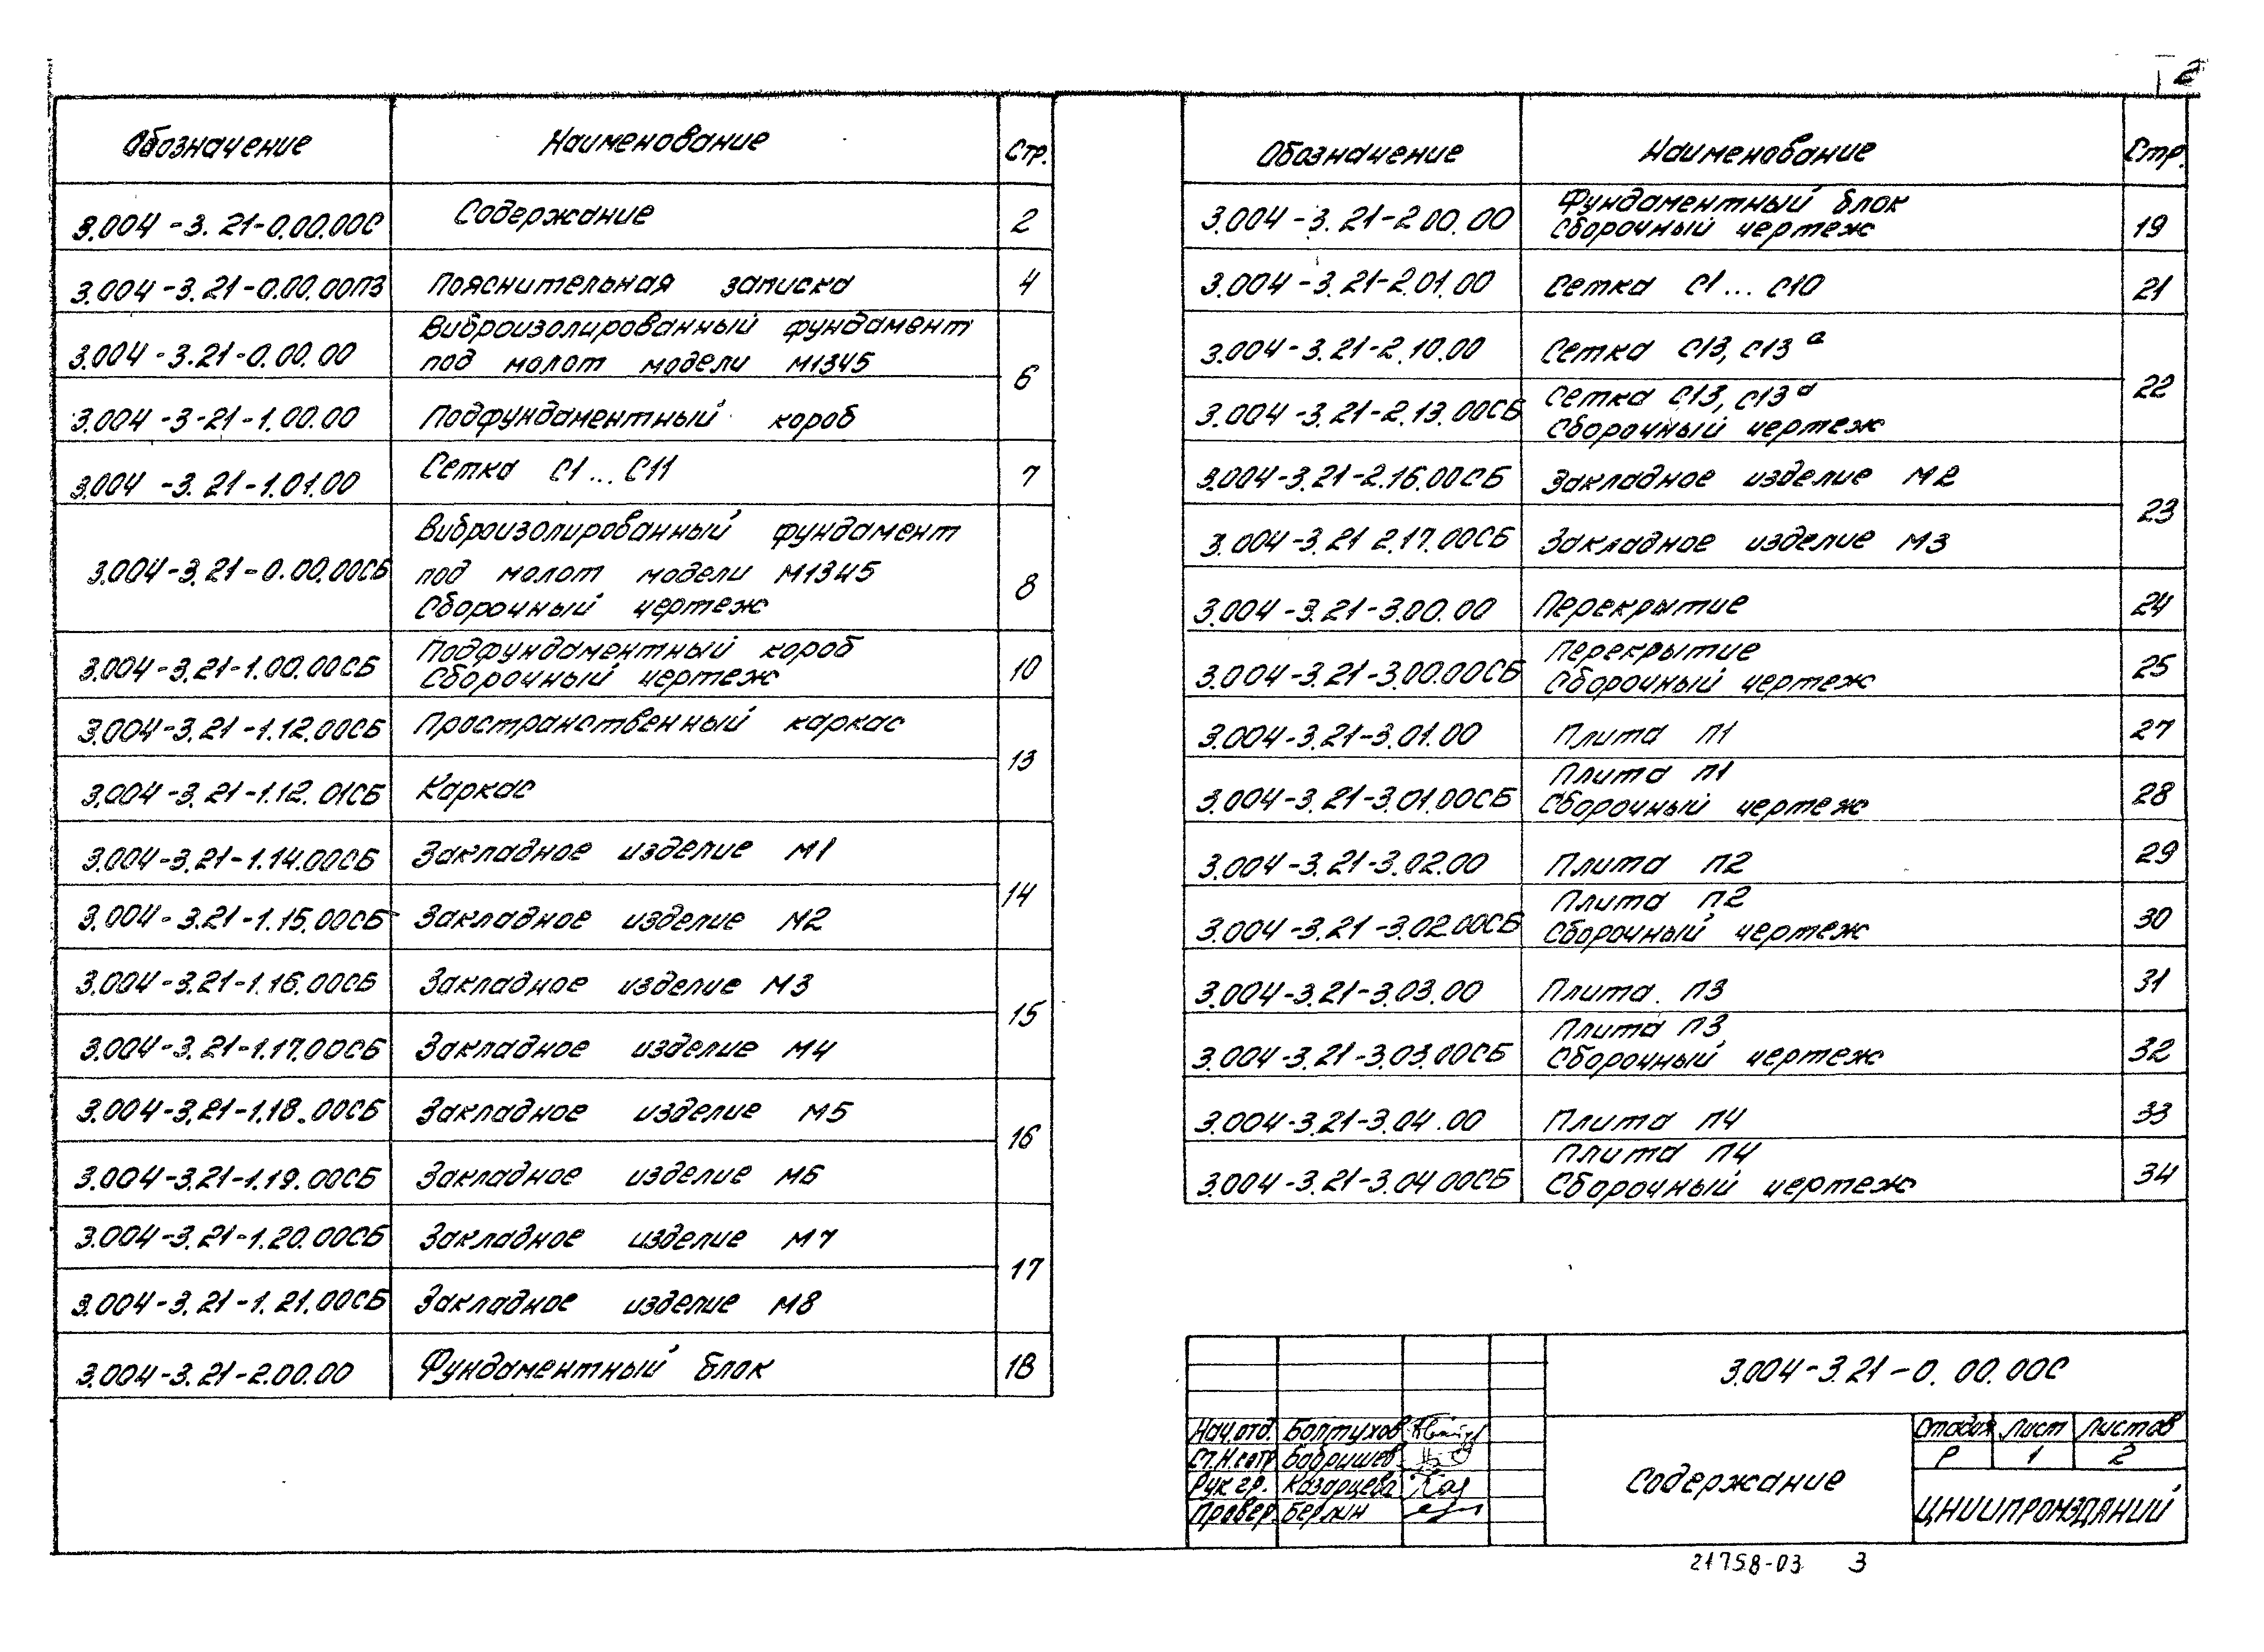 2
Обозначение Наименование Стр.
3.004-3.21-0.00.00С Содержание 2
3.004-3.21-0.00.00ПЗ Пояснительная записка 4
3.004-3.21-0.00.00 Виброизолированный фундамент
под молот модели М1345 6
3.004-3-21-1.00.00 Подфундаментный короб
3.004-3.21-1.01.00 Сетка С1...С11 7
3.004-3.21-0.00.00СБ Виброизолированный фундамент
под молот модели М1345
Сборочный чертеж 8
3.004-3.21-1.00.00СБ Подфундаментный короб
Сборочный чертеж 10
3.004-3.21-1.12.00СБ Пространственный каркас 13
3.004-3.21-1.12.01СБ Каркас
3.004-3.21-1.14.00СБ Закладное изделие М1 14
3.004-3.21-1.15.00СБ Закладное изделие М2
3.004-3.21-1.16.00СБ Закладное изделие М3 15
3.004-3.21-1.17.00СБ Закладное изделие М4
3.004-3.21-1.18.00СБ Закладное изделие М5 16
3.004-3.21-1.19.00СБ Закладное изделие М6
3.004-3.21-1.20.00СБ Закладное изделие М7 17
3.004-3.21-1.21.00СБ Закладное изделие М8
3.004-3.21-2.00.00 Фундаментный блок 18
Обозначение Наименование Стр.
3.004-3.21-2.00.00 Фундаментный блок
Сборочный чертеж 19
3.004-3.21-2.01.00 Сетка С1...С10 21
3.004-3.21-2.10.00 Сетка С13, С13а 22
3.004-3.21-2.13.00СБ Сетка С13, С13а
Сборочный чертеж
3.004-3.21-2.16.00СБ Закладное изделие М2 23
3.004-3.21 2.17.00СБ Закладное изделие М3
3.004-3.21-3.00.00 Перекрытие 24
3.004-3.21-3.00.00СБ Перекрытие
Сборочный чертеж 25
3.004-3.21-3.01.00 Плита П1 27
3.004-3.21-3.01.00СБ Плита П1
Сборочный чертеж 28
3.004-3.21-3.02.00 Плита П2 29
3.004-3.21-3.02.00СБ Плита П2
Сборочный чертеж 30
3.004-3.21-3.03.00 Плита П3 31
3.004-3.21-3.03.00СБ Плита П3
Сборочный чертеж 32
3.004-3.21-3.04.00 Плита П4 33
3.004-3.21-3.04 00СБ Плита П4
Сборочный чертеж 34
3.004-3.21-0.00.00С
Нач.отд. Болтухов
Ст.н.сотр Бабришев
Рук гр. Казарцева
Провер. Берлин
Содержание
Стадия Лист Листов
Р 1 2
ЦНИИПРОМЗДАНИЙ
21758-03 3